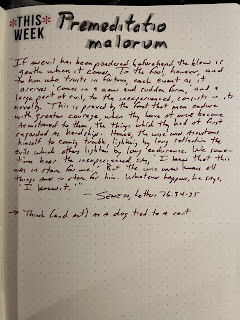 *THIS*
WEEK
Premeditatio
malorum
If an evil has been pondered beforehand the blow is
gentle when it comes. To the fool, however, and
to him who trusts in fortune, each event as it
arrives "comes in a new and sudden form," and a
large part of evil, to the inexperienced, consists in its
novelty. This is proved by the fact that men endure
with greater courage, when they have once become
accustomed to them, the things which they had at first
regarded as hardships. Hence, the wise man accustoms
himself to coming trouble, lightening by long reflection the
evils which others lighten by long endurance. We some-
times hear the inexperienced say, "I knew that this
was in store for me." But the wise man knows all
things are in store for him. Whatever happens, he says,
"I knew it."
- Seneca, Letters 76.34-35
→ Think (and act) as a dog tied to a cart